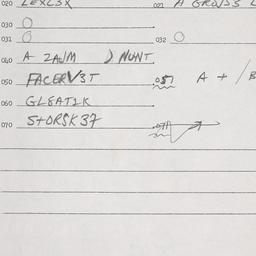 020 LEXL3X 021 A GROUSS L
030 O
031 O 032 O
040 A 2AUM ) NUNT
050 FACERV3T 051 A + / B
060 GLEATIK
070 STORSK37